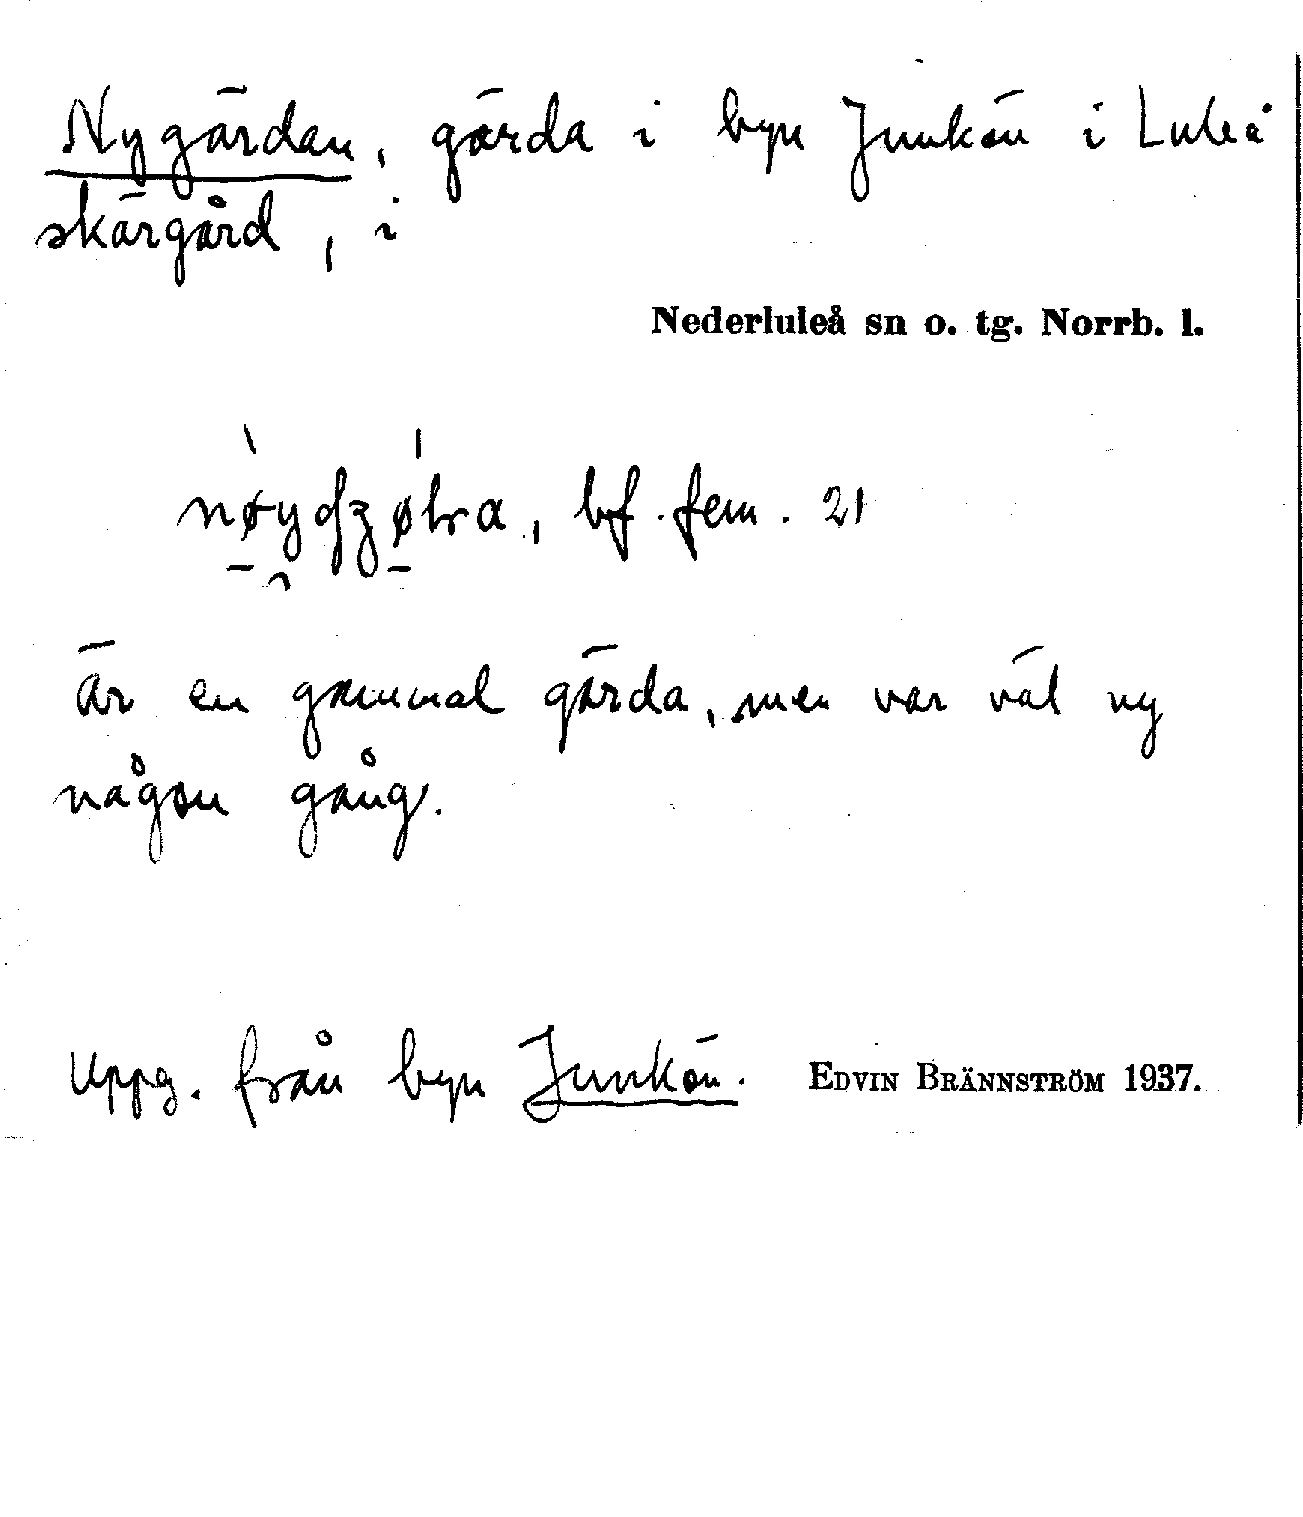 Nygärdan, gärda i byn Junkön i Luleå
skärgård, i
Nederluleå sn o. tg. Norrb. l.
bf. fem. 21
Är en gammal gärda, men var väl ny
någon gång.
Uppg. från byn Junkön. EDVIN BRÄNNSTRÖM 1937.